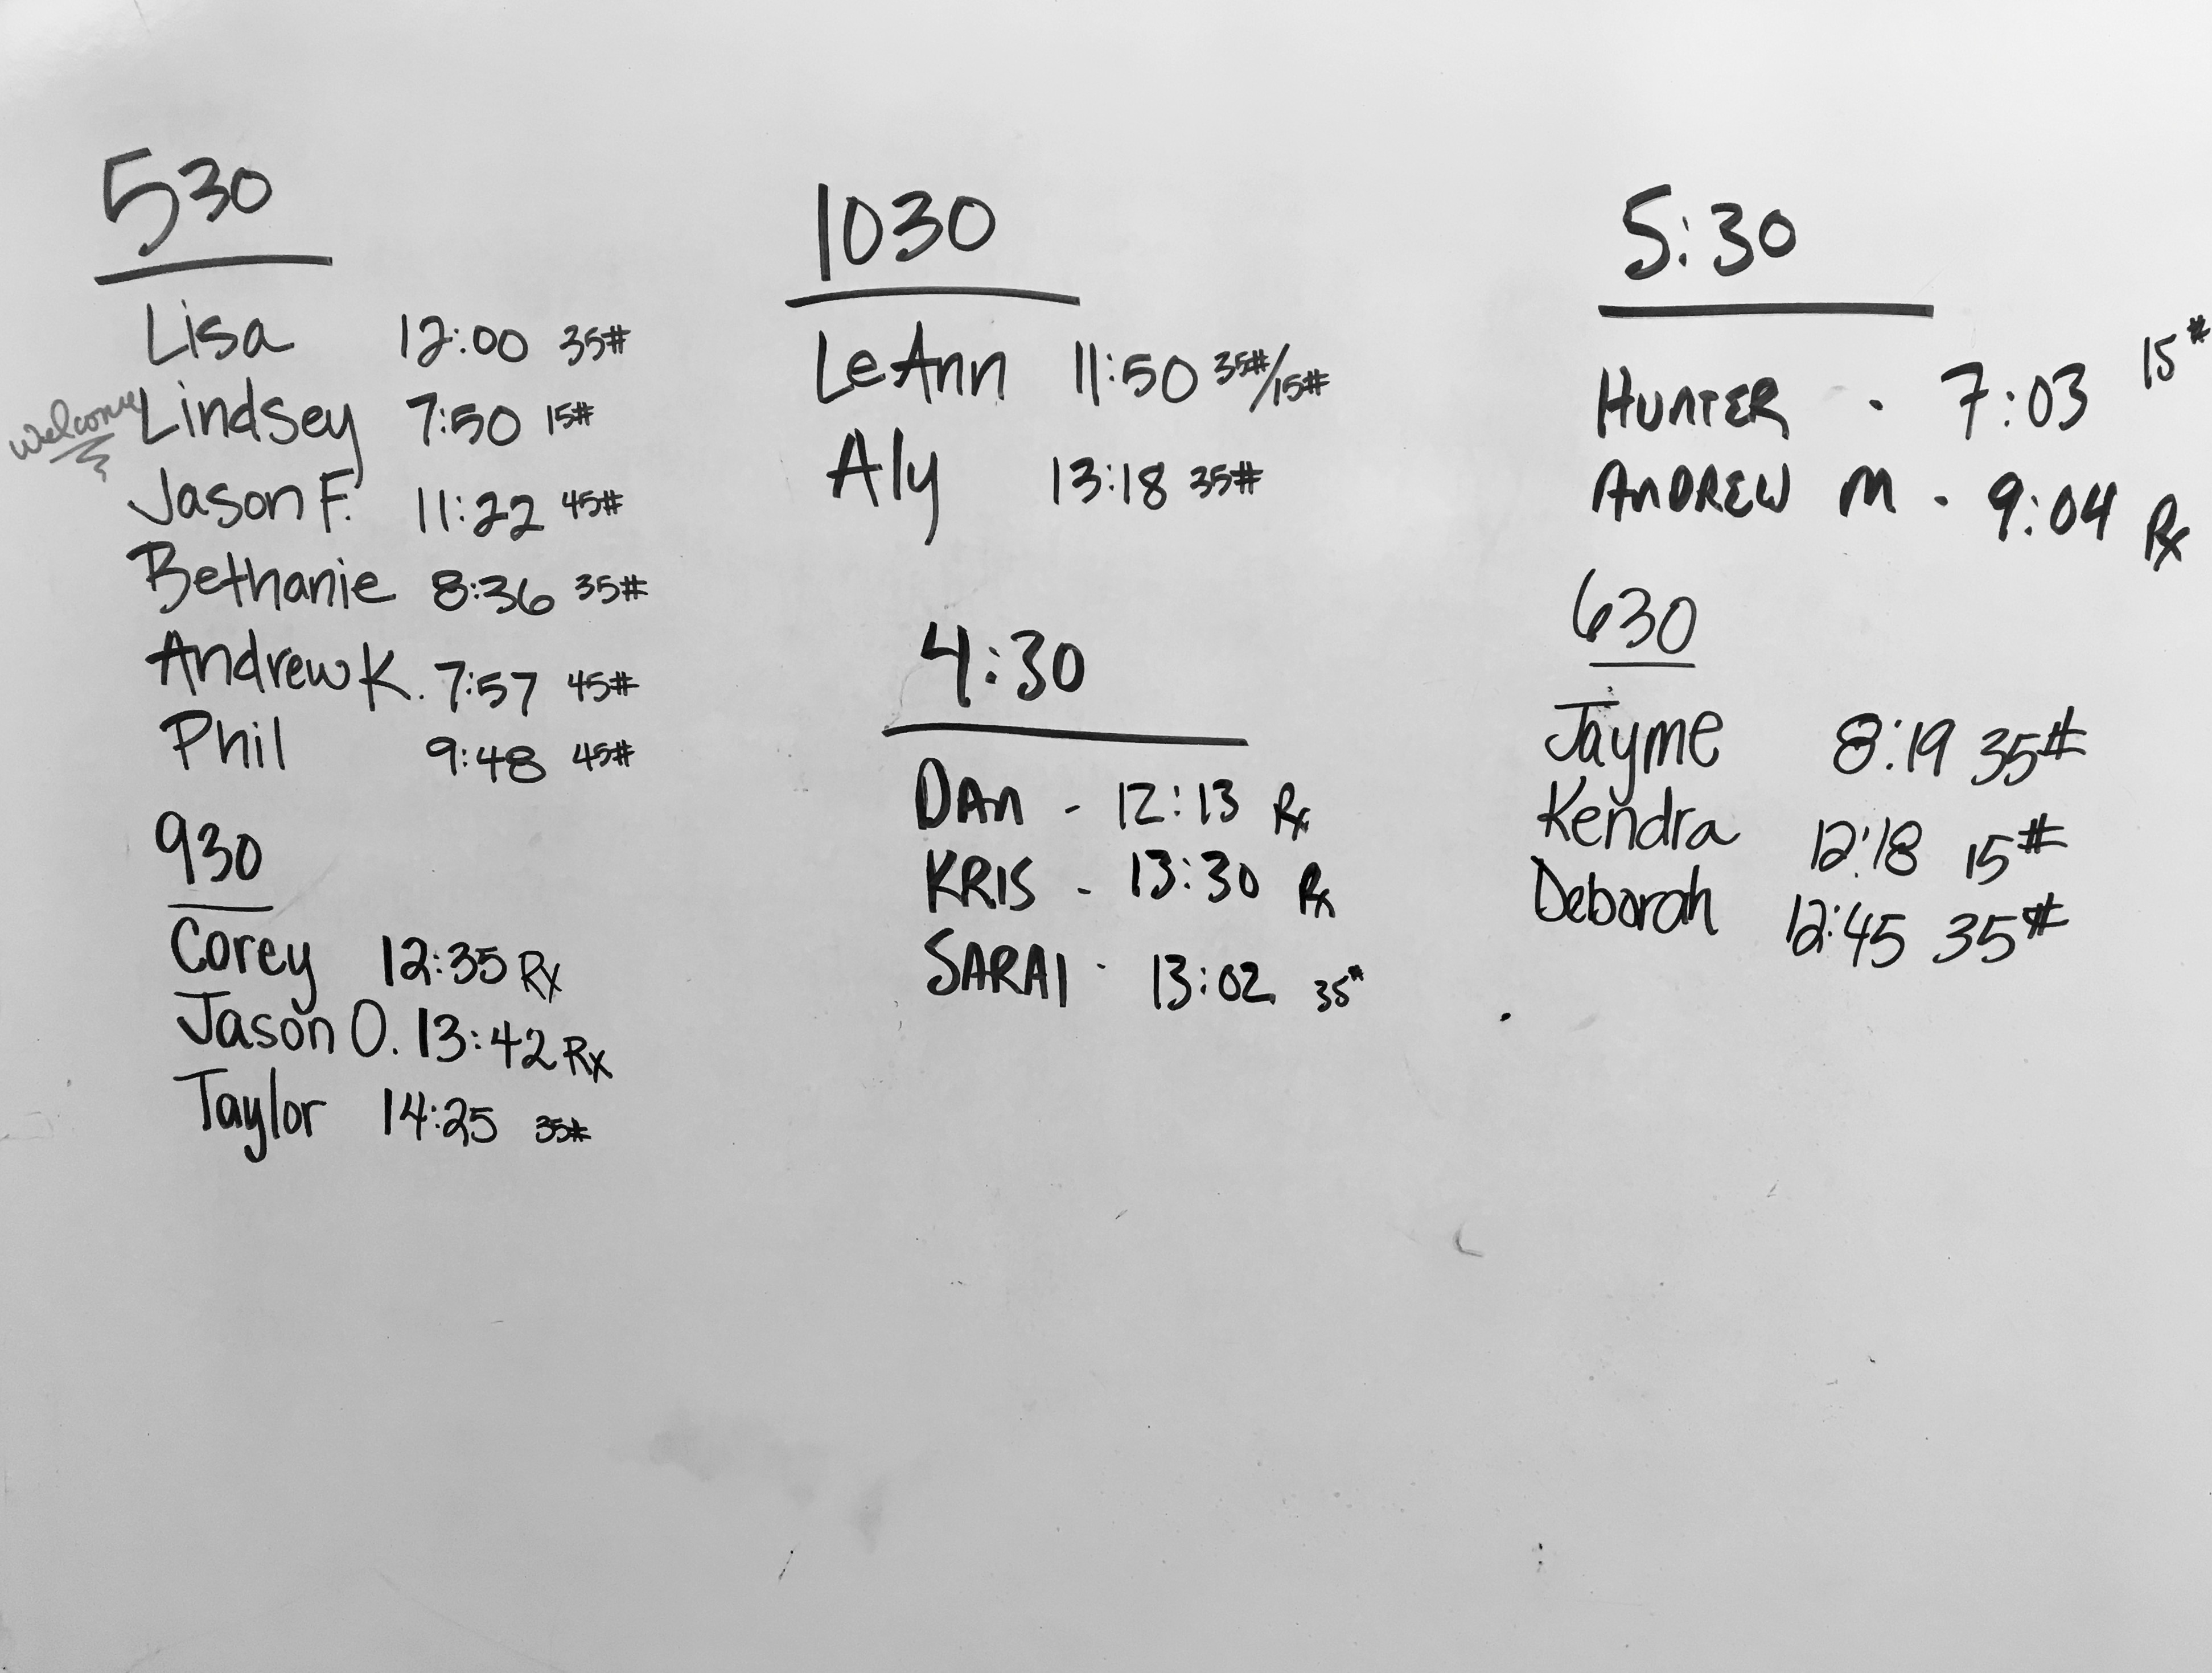 530
Lisa 12:00 35#
welcome Lindsey 7:50 15#
Jason F. 11:22 45#
Bethanie 8:36 35#
Andrew K. 7:57 45#
Phil 9:48 45#
930
Corey 12:35 Rx
Jason O. 13:42 Rx
Taylor 14:25 35#
1030
LeAnn 11:50 35#/15#
Aly 13:18 35#
4:30
DAn - 12:13 Rx
KRIS - 13:30 Rx
SARAI - 13:02 35#
5:30
HUnTER - 7:03 15#
AnDREW M - 9:04 Rx
630
Jayme 8:19 35#
Kendra 12:18 15#
Deborah 12:45 35#